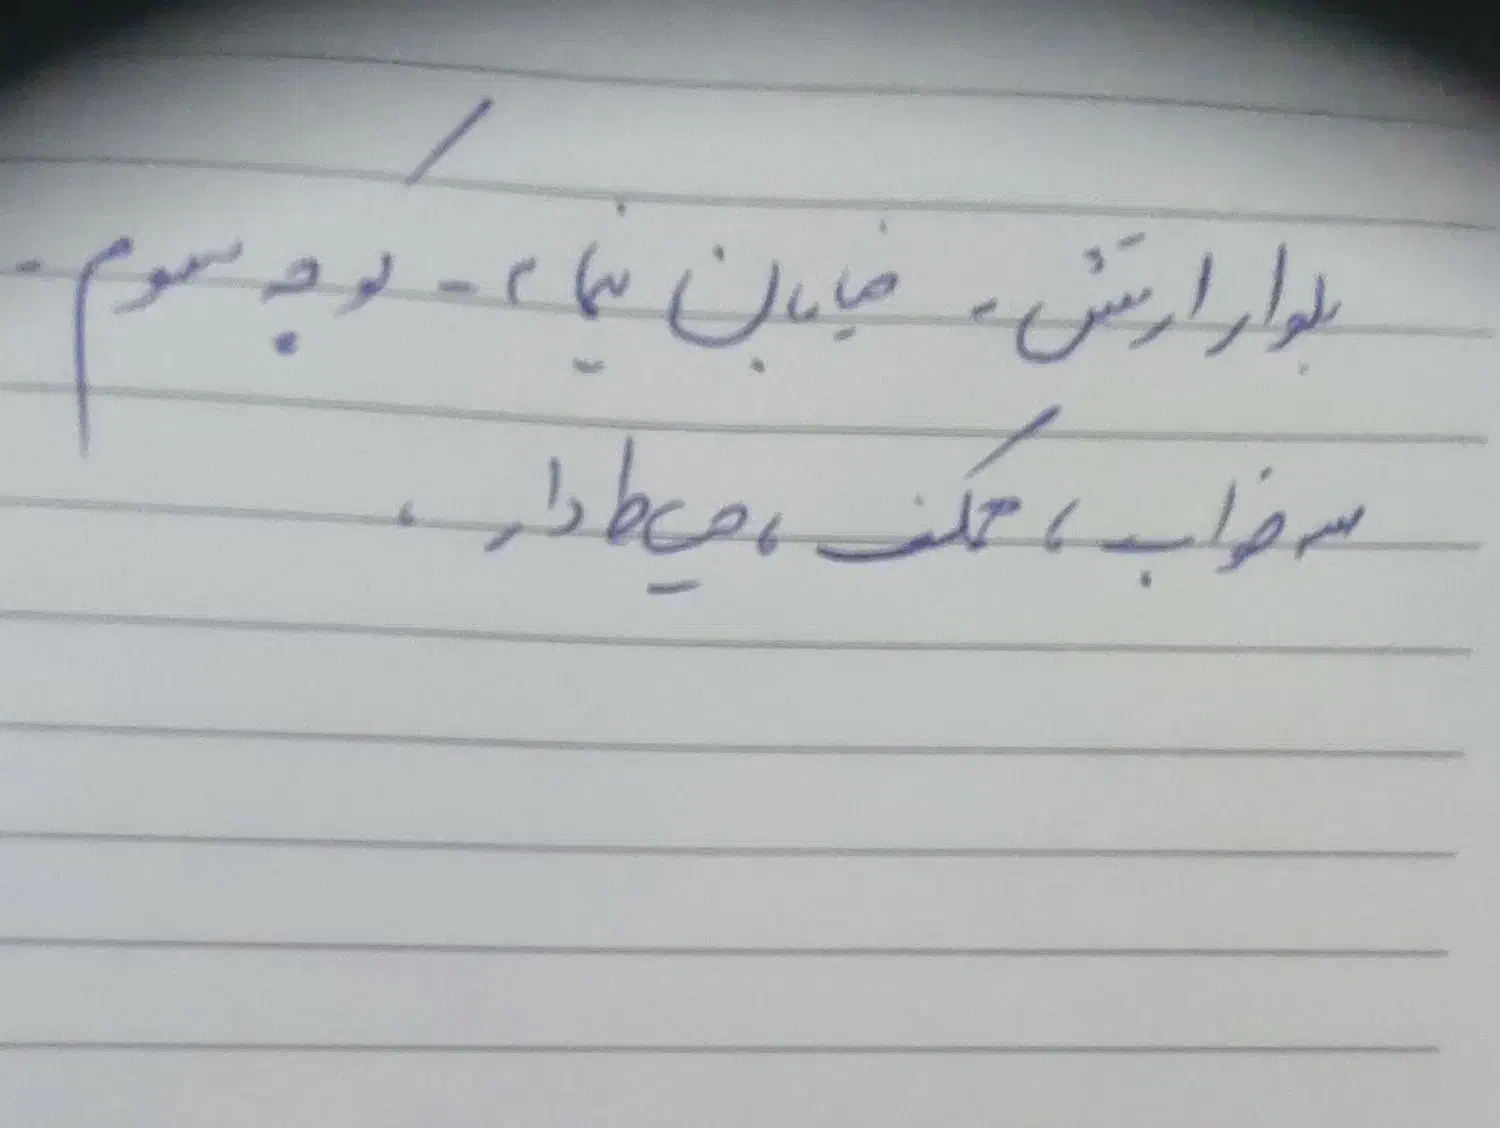 بلوار ارتش - خیابان نیما ۲ - کوچه سوم -
سه خواب، تکلف، حیاط دار،